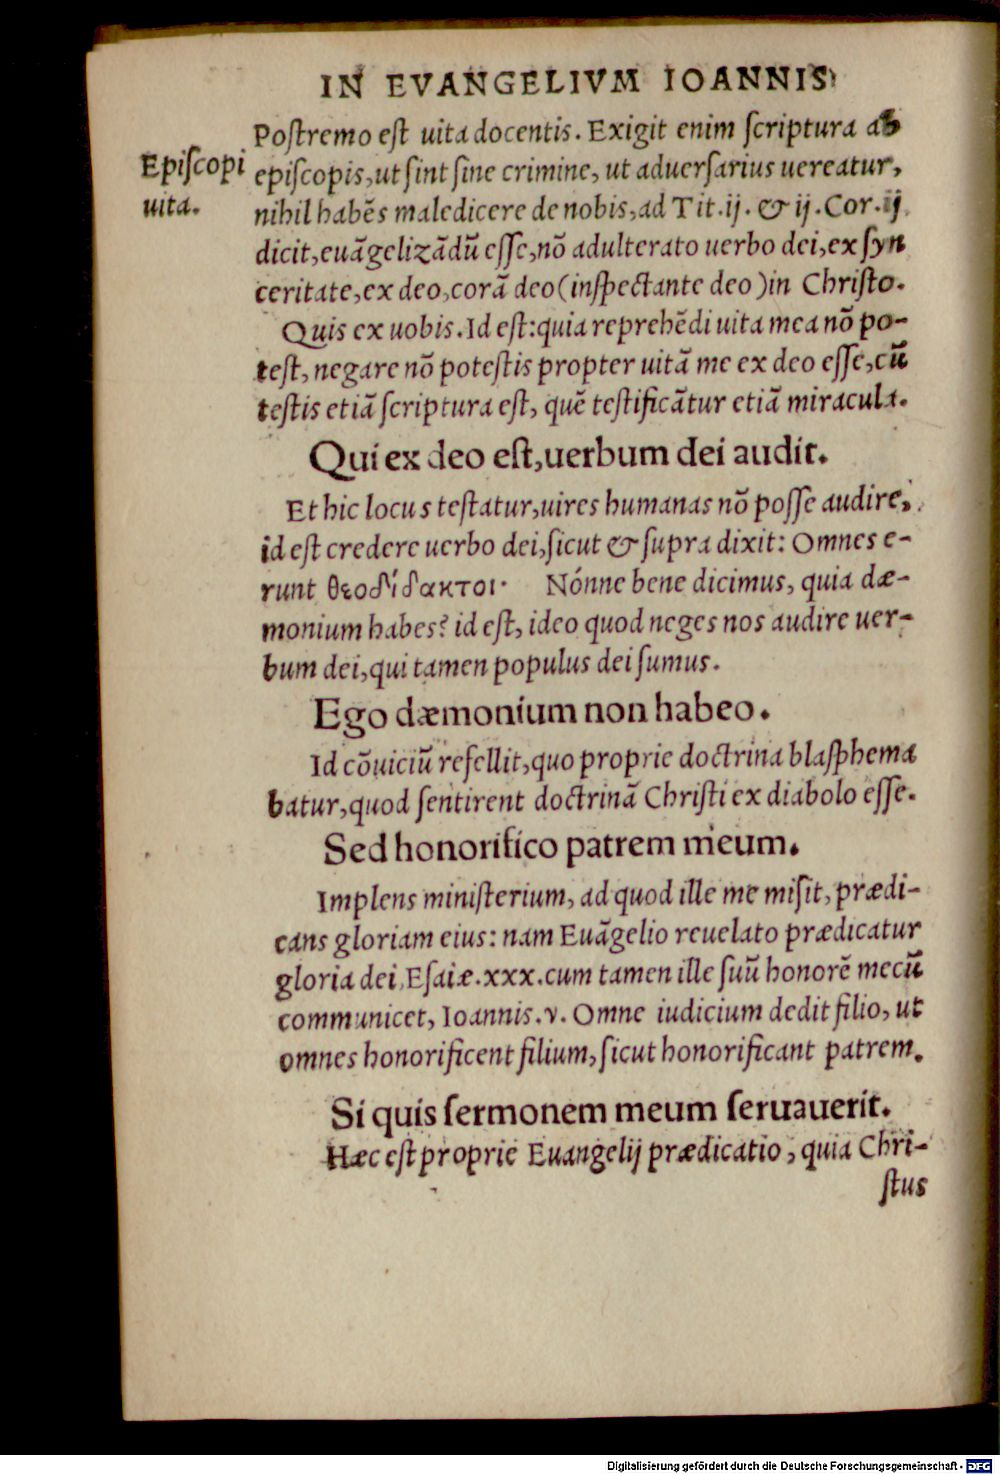 IN EVANGELIVM IOANNIS
Postremo est uita docentis. Exigit enim scriptura ab
Episcopi
uita.
episcopis, ut sint sine crimine, ut aduersarius uereatur,
nihil habēs maledicere de nobis, ad Tit. ij. & ij. Cor. ij
dicit, euāgelizādū esse, nō adulterato uerbo dei, ex syn
ceritate, ex deo, corā deo (inspectante deo) in Christo.
Quis ex uobis. Id est: quia reprehēdi uita mea nō po-
test, negare nō potestis propter uitā me ex deo esse, cū
testis etiā scriptura est, quē testificātur etiā miracula.
Qui ex deo est, uerbum dei audit.
Et hic locus testatur, uires humanas nō posse audire,
id est credere uerbo dei, sicut & supra dixit: Omnes e-
runt θεοδίδακτοι· Nónne bene dicimus, quia dæ-
monium habes? id est, ideo quod neges nos audire uer-
bum dei, qui tamen populus dei sumus.
Ego dæmonium non habeo.
Id cōuiciū refellit, quo proprie doctrina blasphema
batur, quod sentirent doctrinā Christi ex diabolo esse.
Sed honorifico patrem meum.
Implens ministerium, ad quod ille me misit, prædi-
cans gloriam eius: nam Euāgelio reuelato prædicatur
gloria dei, Esaiæ. xxx. cum tamen ille suū honorē mecū
communicet, Ioannis. v. Omne iudicium dedit filio, ut
omnes honorificent filium, sicut honorificant patrem.
Si quis sermonem meum seruauerit.
Hæc est proprie Euangelij prædicatio, quia Chri-
stus
Digitalisierung gefördert durch die Deutsche Forschungsgemeinschaft - DFG